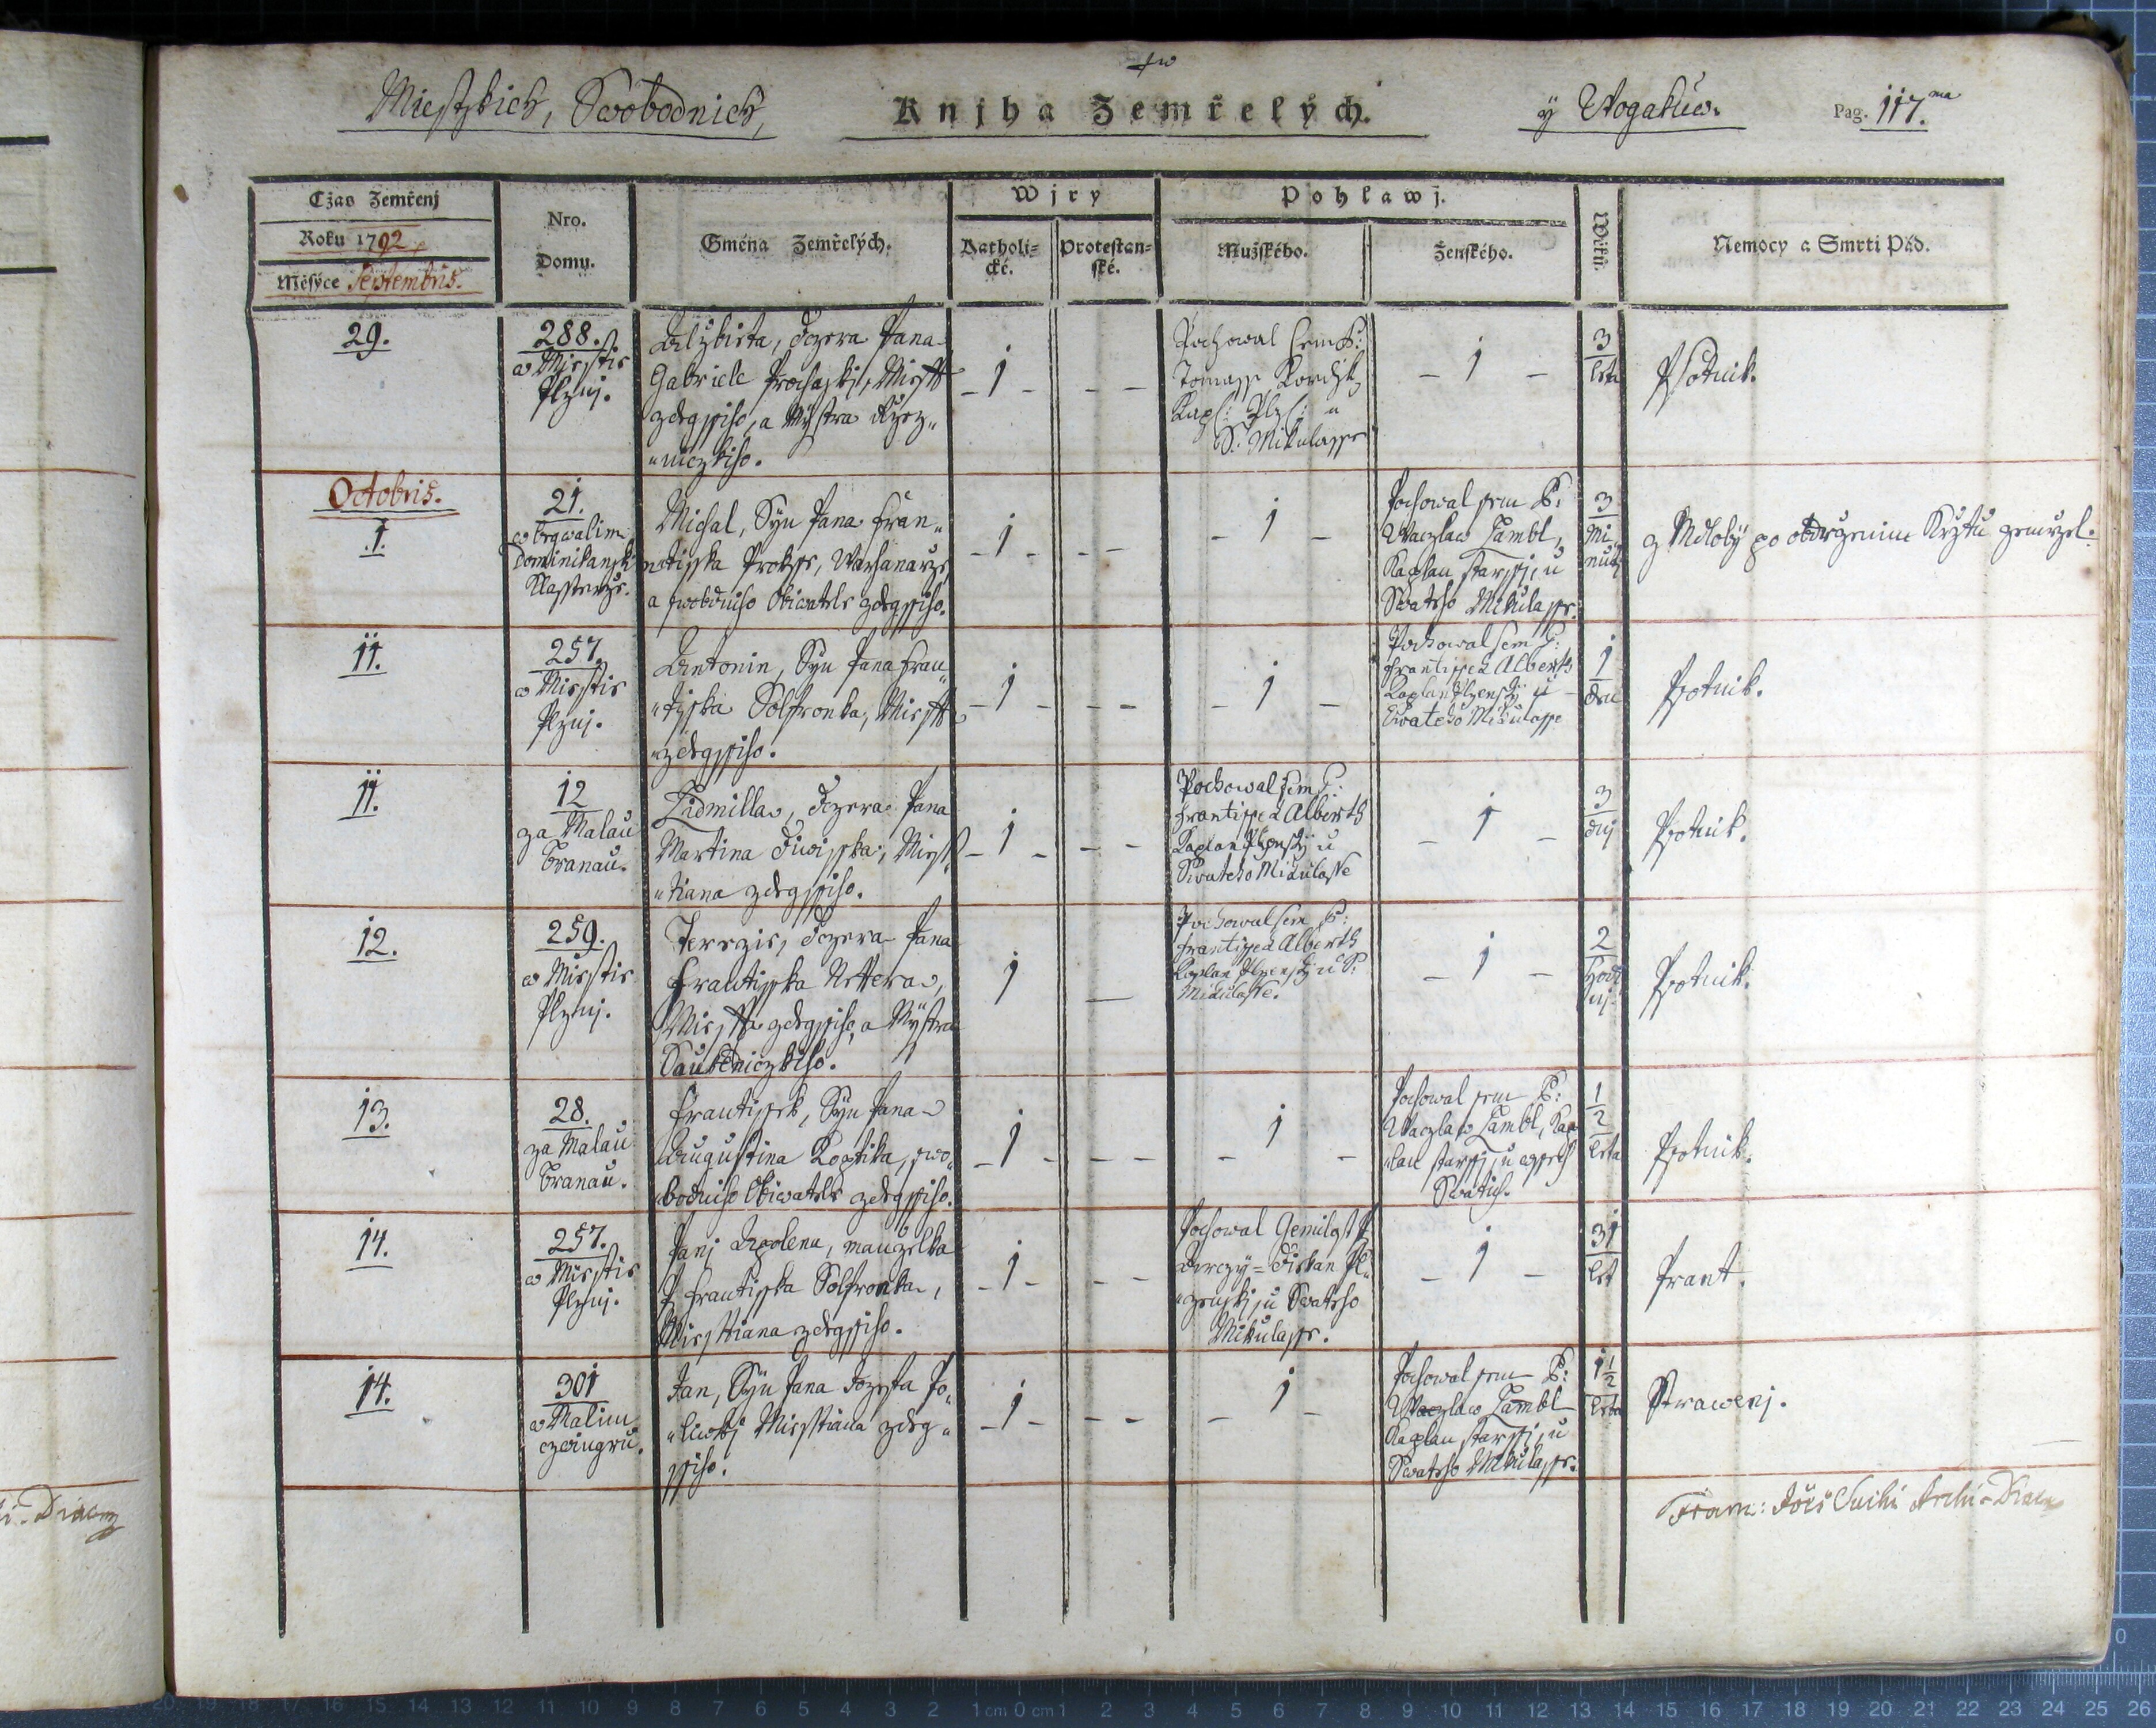 Miestzkich, Swobodnich,
Knjha Zemřelých.
ÿ Wogakuw.
Pag. 117.ma
Cžas Zemřenj
Roku 1792.
Měsýce Septembris.
Nro. Domu.
Gména Zemřelých.
Wjry
Katholi-
cké.
Protestan-
ské.
Pohlawj.
Mužského.
Ženského.
Wěků.
Nemocy a Smrti Pád.
29.
288.
w Miestie
Plznj.
Alzbieta, dczera Pana
Gabriele Prochazki, Miesstt
zdegssiho, a Mistra
niczkiho.
- 1 -
- -
Pochowal sem P:
Tomass
Kapl: Plz: u
S. Mikulasse
- 1 -
3
leta
Psotnik.
Octobris.
1.
21.
w bywalim
Dominikanski
Klassterze.
Michal, Syn Pana Fran„
ntisska Prokse,
a swobdniho Obiwatele zdegssiho.
- 1 -
- -
- 1 -
Pochowal sem P:
Waczlaw Lambl,
Kaplan starssj, u
Swateho Mikulasse.
3
Mi„
nuti
z Mdlobÿ po obdrzenim Krztu zemrzel.
11.
257.
w Miestie
Plznj.
Antonin, Syn Pana Fran„
„tisska Solfronka, Miesstt
„zdegssiho.
- 1 -
- -
- 1 -
Pochowal sem P:
Frantissek Alberth
Kaplan Plzenskÿ u
Swateho Mikulasse
1
den
Psotnik.
11.
12
za Malau
Branau.
Lidmilla, dczera Pana
Martina Diwisska, Miesst„
„tiana zdegssiho.
- 1 -
- -
Pochowal sem P:
Frantissek Alberth
Kaplan Plzenskÿ u
Swateho Mikulasse
- 1 -
3
dnj
Psotnik.
12.
259.
w Miestie
Plznj.
Terezie, dczera Pana
Frantisska Nettera,
Miestta zdegssiho, a Mÿstra
Saukeniczkiho.
1
-
Pochowal sem P:
Frantissek Alberth
Kaplan Plzenskÿ u S:
Mikulasse.
- 1 -
2
hodi
nj
Psotnik.
13.
28.
za Malau
Branau.
Frantissek, Syn Pana
Augustina Koptika, swo„
„bodniho Obiwatele zdegssiho.
- 1 -
- -
- 1 -
Pochowal sem P:
Waczlaw Lambl, Kap
„lan starssj, u wssech
Swatich.
1/2
leta
Psotnik.
14.
257.
w Miestie
Plznj.
Panj Apolena, manzelka
P. Frantisska Solfronka,
Miesstiana zdegssiho.
- 1 -
- -
Pochowal
Arczy=Diekan Pl„
„zenskj, u Swateho
Mikulasse.
- 1 -
31
let
Prant.
14.
301
w Malim
czwingru.
Jan, Syn Pana Jozefa Po„
„liwkj Miesstiana zdeg„
ssiho.
- 1 -
- -
- 1 -
Pochowal sem P:
Waczlaw Lambl
Kaplan starssj, u
Swateho Mikulasse.
1 1/2
leta
Strawenj.